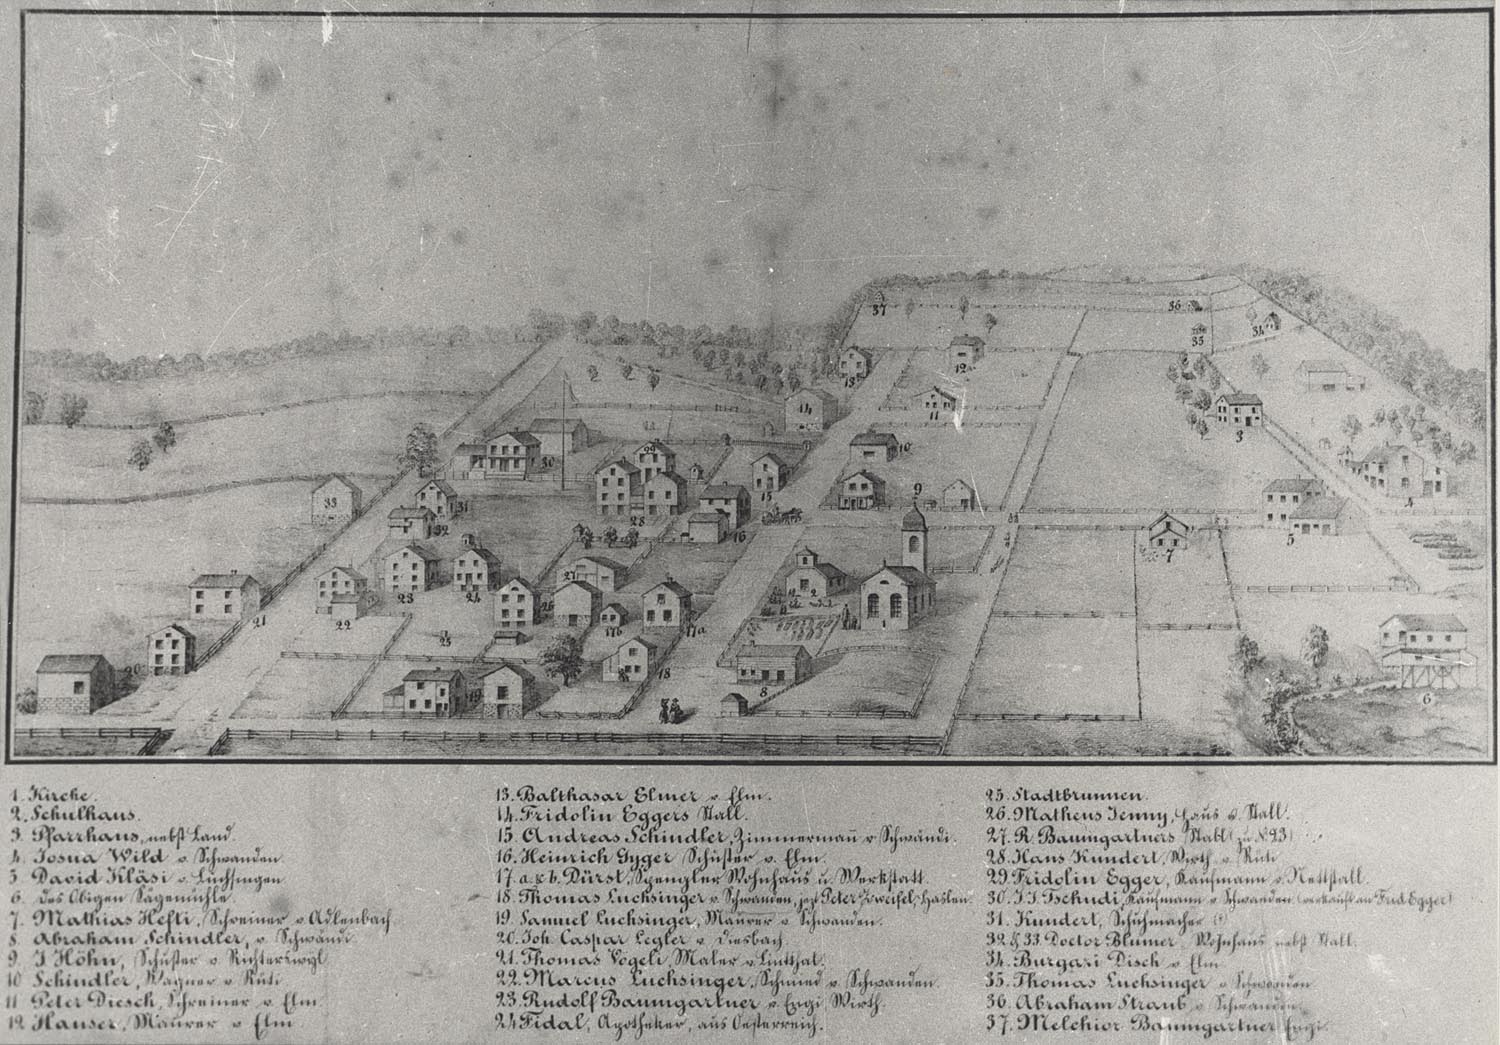 37
36
35
34
13
12
14
11
3
10
29
30
33
31
15
4
9
28
32
16
7
5
23
24
27
2
26
22
21
17b
17a
1
25
20
18
8
19
6
1. Kirche.
2. Schulhaus.
3. Pfarrhaus, nebst Land.
4. Josua Wild v. Schwanden.
5. David Kläsi v. Luchsingen
6. des Obigen Sägemühle.
7. Mathias Hefti, Schreiner v. Adlenbach
8. Abraham Schindler, v. Schwändi.
9. J. Höhn, Schuster v.
10 Schindler, Wagner v. Rüti
11 Peter Diesch, Schreiner v. Elm.
12 Hauser, Maurer v. Elm
13. Balthasar Elmer v. Elm.
14. Fridolin Eggers Stall.
15. Andreas Schindler, Zimmermañ v. Schwändi.
16. Heinrich Gyger Schuster v. Elm.
17. a. & b. Dürst, Spengler Wohnhaus u. Werkstatt.
18. Thomas Luchsinger v. Schwanden, jezt Peter Zweifel, Haslen.
19. Samuel Luchsinger, Maurer v. Schwanden.
20. Joh. Caspar Legler v. Diesbach
21. Thomas Vögeli, Maler v. Lintthal.
22. Marcus Luchsinger, Schmied v. Schwanden.
23. Rudolf Baumgartner v. Engi, Wirth.
24 Fidal, Apotheker, aus Oesterreich.
25. Stadtbrunnen.
26. Matheus Jenny, Haus u. Stall.
27. R. Baumgartners Stall (zu № 23)
28. Hans Kundert, Wirth v. Rüti
29. Fridolin Egger, Kaufmann v. Nettstall.
30. J. J. Tschudi, Kaufmann v. Schwanden (verkauft an Frid. Egger)
31. Kundert, Schuhmacher
32. & 33. Doctor Blumer, Wohnhaus nebst Stall.
34. Burgazi Disch v. Elm
35. Thomas Luchsinger v. Schwanden
36. Abraham Straub v. Schwanden.
37. Melchior Baumgartner Engi.